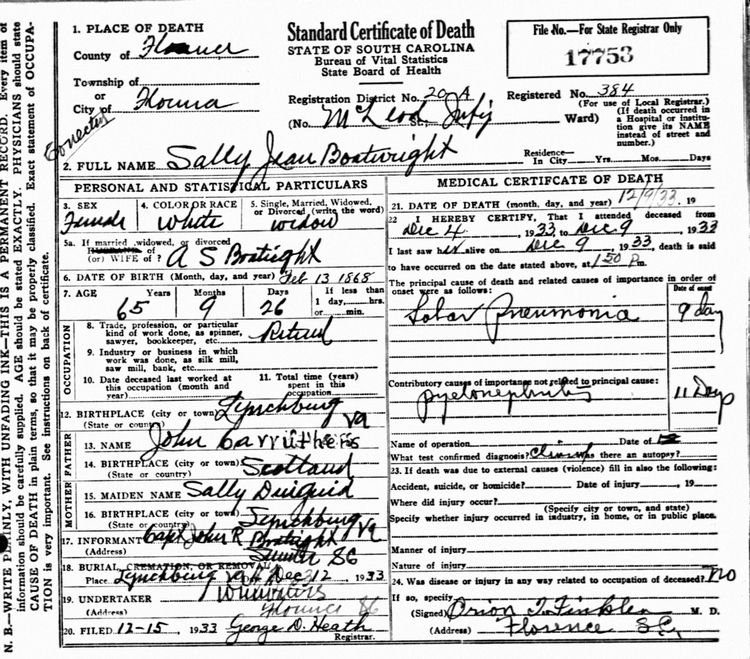 N. B.—WRITE PLAINLY, WITH UNFADING INK—THIS IS A PERMANENT RECORD. Every item of
information should be carefully supplied. AGE should be stated EXACTLY. PHYSICIANS should state
CAUSE OF DEATH in plain terms, so that it may be properly classified. Exact statement of OCCUPA-
TION is very important. See instructions on back of certificate.
1. PLACE OF DEATH
County of
Township of
or
City of
Standard Certificate of Death
STATE OF SOUTH CAROLINA
Bureau of Vital Statistics
State Board of Health
File No.—For State Registrar Only
17753
Registration District No. 20 A Registered No. 384
(No. McLeod St., Infy Ward)
(For use of Local Registrar.)
(If death occurred in
a Hospital or institu-
tion give its NAME
instead of street and
number.)
2. FULL NAME Sally Jean Boatwright
Residence—
In City Yrs. Mos. Days
PERSONAL AND STATISTICAL PARTICULARS
3. SEX Female
4. COLOR OR RACE White
5. Single, Married, Widowed,
or Divorced (write the word)
widow
5a. If married, widowed, or divorced
HUSBAND of
(or) WIFE of A S Boatright
6. DATE OF BIRTH (Month, day, and year) Feb 13 1868
7. AGE Years Months Days If less than
1 day, hrs.
or min.
65 9 26
OCCUPATION
8. Trade, profession, or particular
kind of work done, as spinner,
sawyer, bookkeeper, etc. Retired
9. Industry or business in which
work was done, as silk mill,
saw mill, bank, etc.
10. Date deceased last worked at
this occupation (month and
year)
11. Total time (years)
spent in this
occupation
12. BIRTHPLACE (city or town) Lynchburg Va
(State or country)
FATHER
13. NAME John Carruthers
14. BIRTHPLACE (city or town) Scotland
(State or country)
MOTHER
15. MAIDEN NAME Sally Duiguid
16. BIRTHPLACE (city or town) Lynchburg Va
(State or country)
17. INFORMANT Capt John R Boatright
(Address) Sumter SC
18. BURIAL, CREMATION, OR REMOVAL
Place Lynchburg Va Dec 12, 1933
19. UNDERTAKER
(Address) Florence SC
20. FILED 12-15, 1933 George D. Heath
Registrar.
MEDICAL CERTIFICATE OF DEATH
21. DATE OF DEATH (month, day, and year) 12/9/33, 19
22 I HEREBY CERTIFY, That I attended deceased from
Dec 4, 1933 to Dec 9, 1933
I last saw her alive on Dec 9, 1933, death is said
to have occurred on the date stated above, at 1:50 Pm.
The principal cause of death and related causes of importance in order of
onset were as follows: Date of onset
Lobar Pneumonia 9 day
Contributory causes of importance not related to principal cause:
pyelonephritis 11 Days
Name of operation Date of
What test confirmed diagnosis? Clinical Was there an autopsy?
23. If death was due to external causes (violence) fill in also the following:
Accident, suicide, or homicide? Date of injury , 19
Where did injury occur?
(Specify city or town, and state)
Specify whether injury occurred in industry, in home, or in public place.
Manner of injury
Nature of injury
24. Was disease or injury in any way related to occupation of deceased? No
If so, specify
(Signed) M. D.
(Address) Florence S.C.